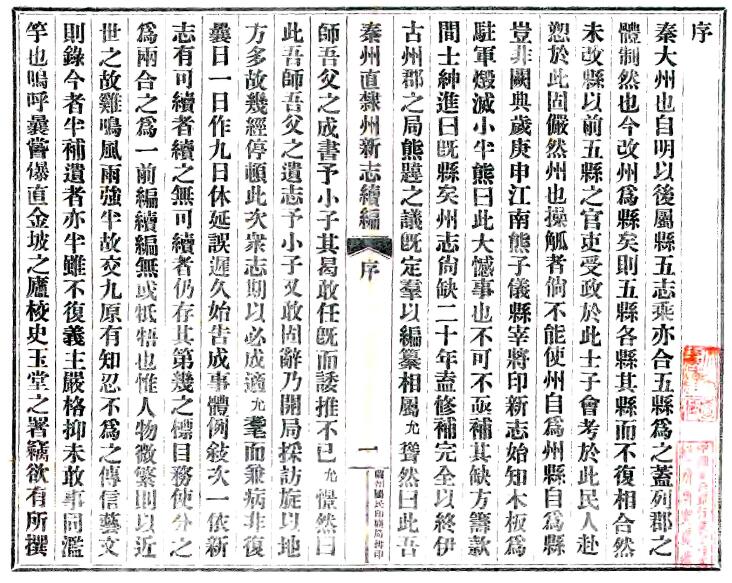 序
秦大州也自明以後屬縣五志乘亦合五縣爲之蓋列郡之
體制然也今改州爲縣矣則五縣各縣其縣而不復相合然
未改縣以前五縣之官吏受政於此士子會考於此民人赴
愬於此固儼然州也操觚者倘不能使州自爲州縣自爲縣
豈非闕典歲庚申江南熊子儀縣宰將印新志始知木板爲
駐軍燬滅小半熊曰此大憾事也不可不亟補其缺方籌款
間士紳進曰旣縣矣州志尙缺二十年盍修補完全以終伊
古州郡之局熊韙之議旣定羣以編纂相屬允聳然曰此吾
秦州直隸州新志續編 序 一 蘭州國民印刷局排印
師吾父之成書予小子其曷敢任旣而諉推不已允憬然曰
此吾師吾父之遺志予小子又敢固辭乃開局採訪旋以地
方多故幾經停頓此次衆志期以必成適允耄而兼病非復
曩日一日作九日休延誤遲久始告成事體例敍次一依新
志有可續者續之無可續者仍存其第幾之標目務使分之
爲兩合之爲一前編續編無或牴牾也惟人物微繁則以近
世之故雞鳴風雨強半故交九原有知忍不爲之傳信藝文
則錄今者半補遺者亦半雖不復義主嚴格抑未敢事同濫
竽也嗚呼曩嘗爆直金坡之廬校史玉堂之署竊欲有所撰